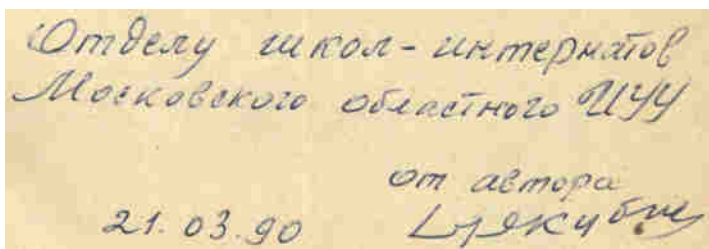 Отделу школ-интернатов
Московского областного ИУУ
от автора
21.03.90